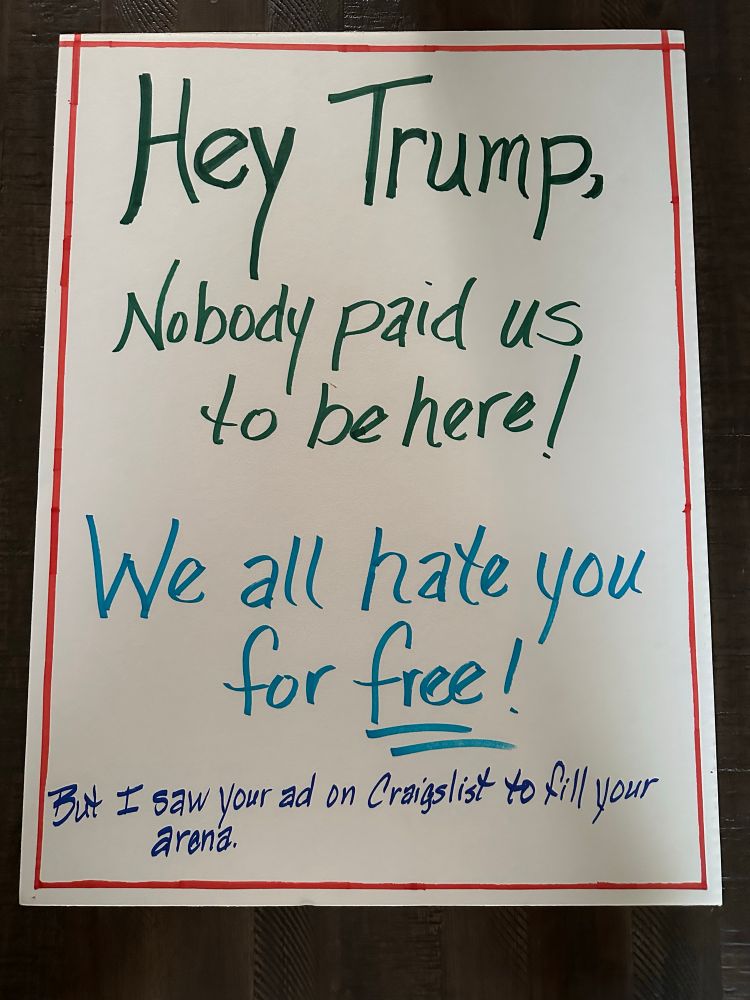 Hey Trump,
Nobody paid us
to be here!
We all hate you
for free!
But I saw your ad on Craigslist to fill your
arena.